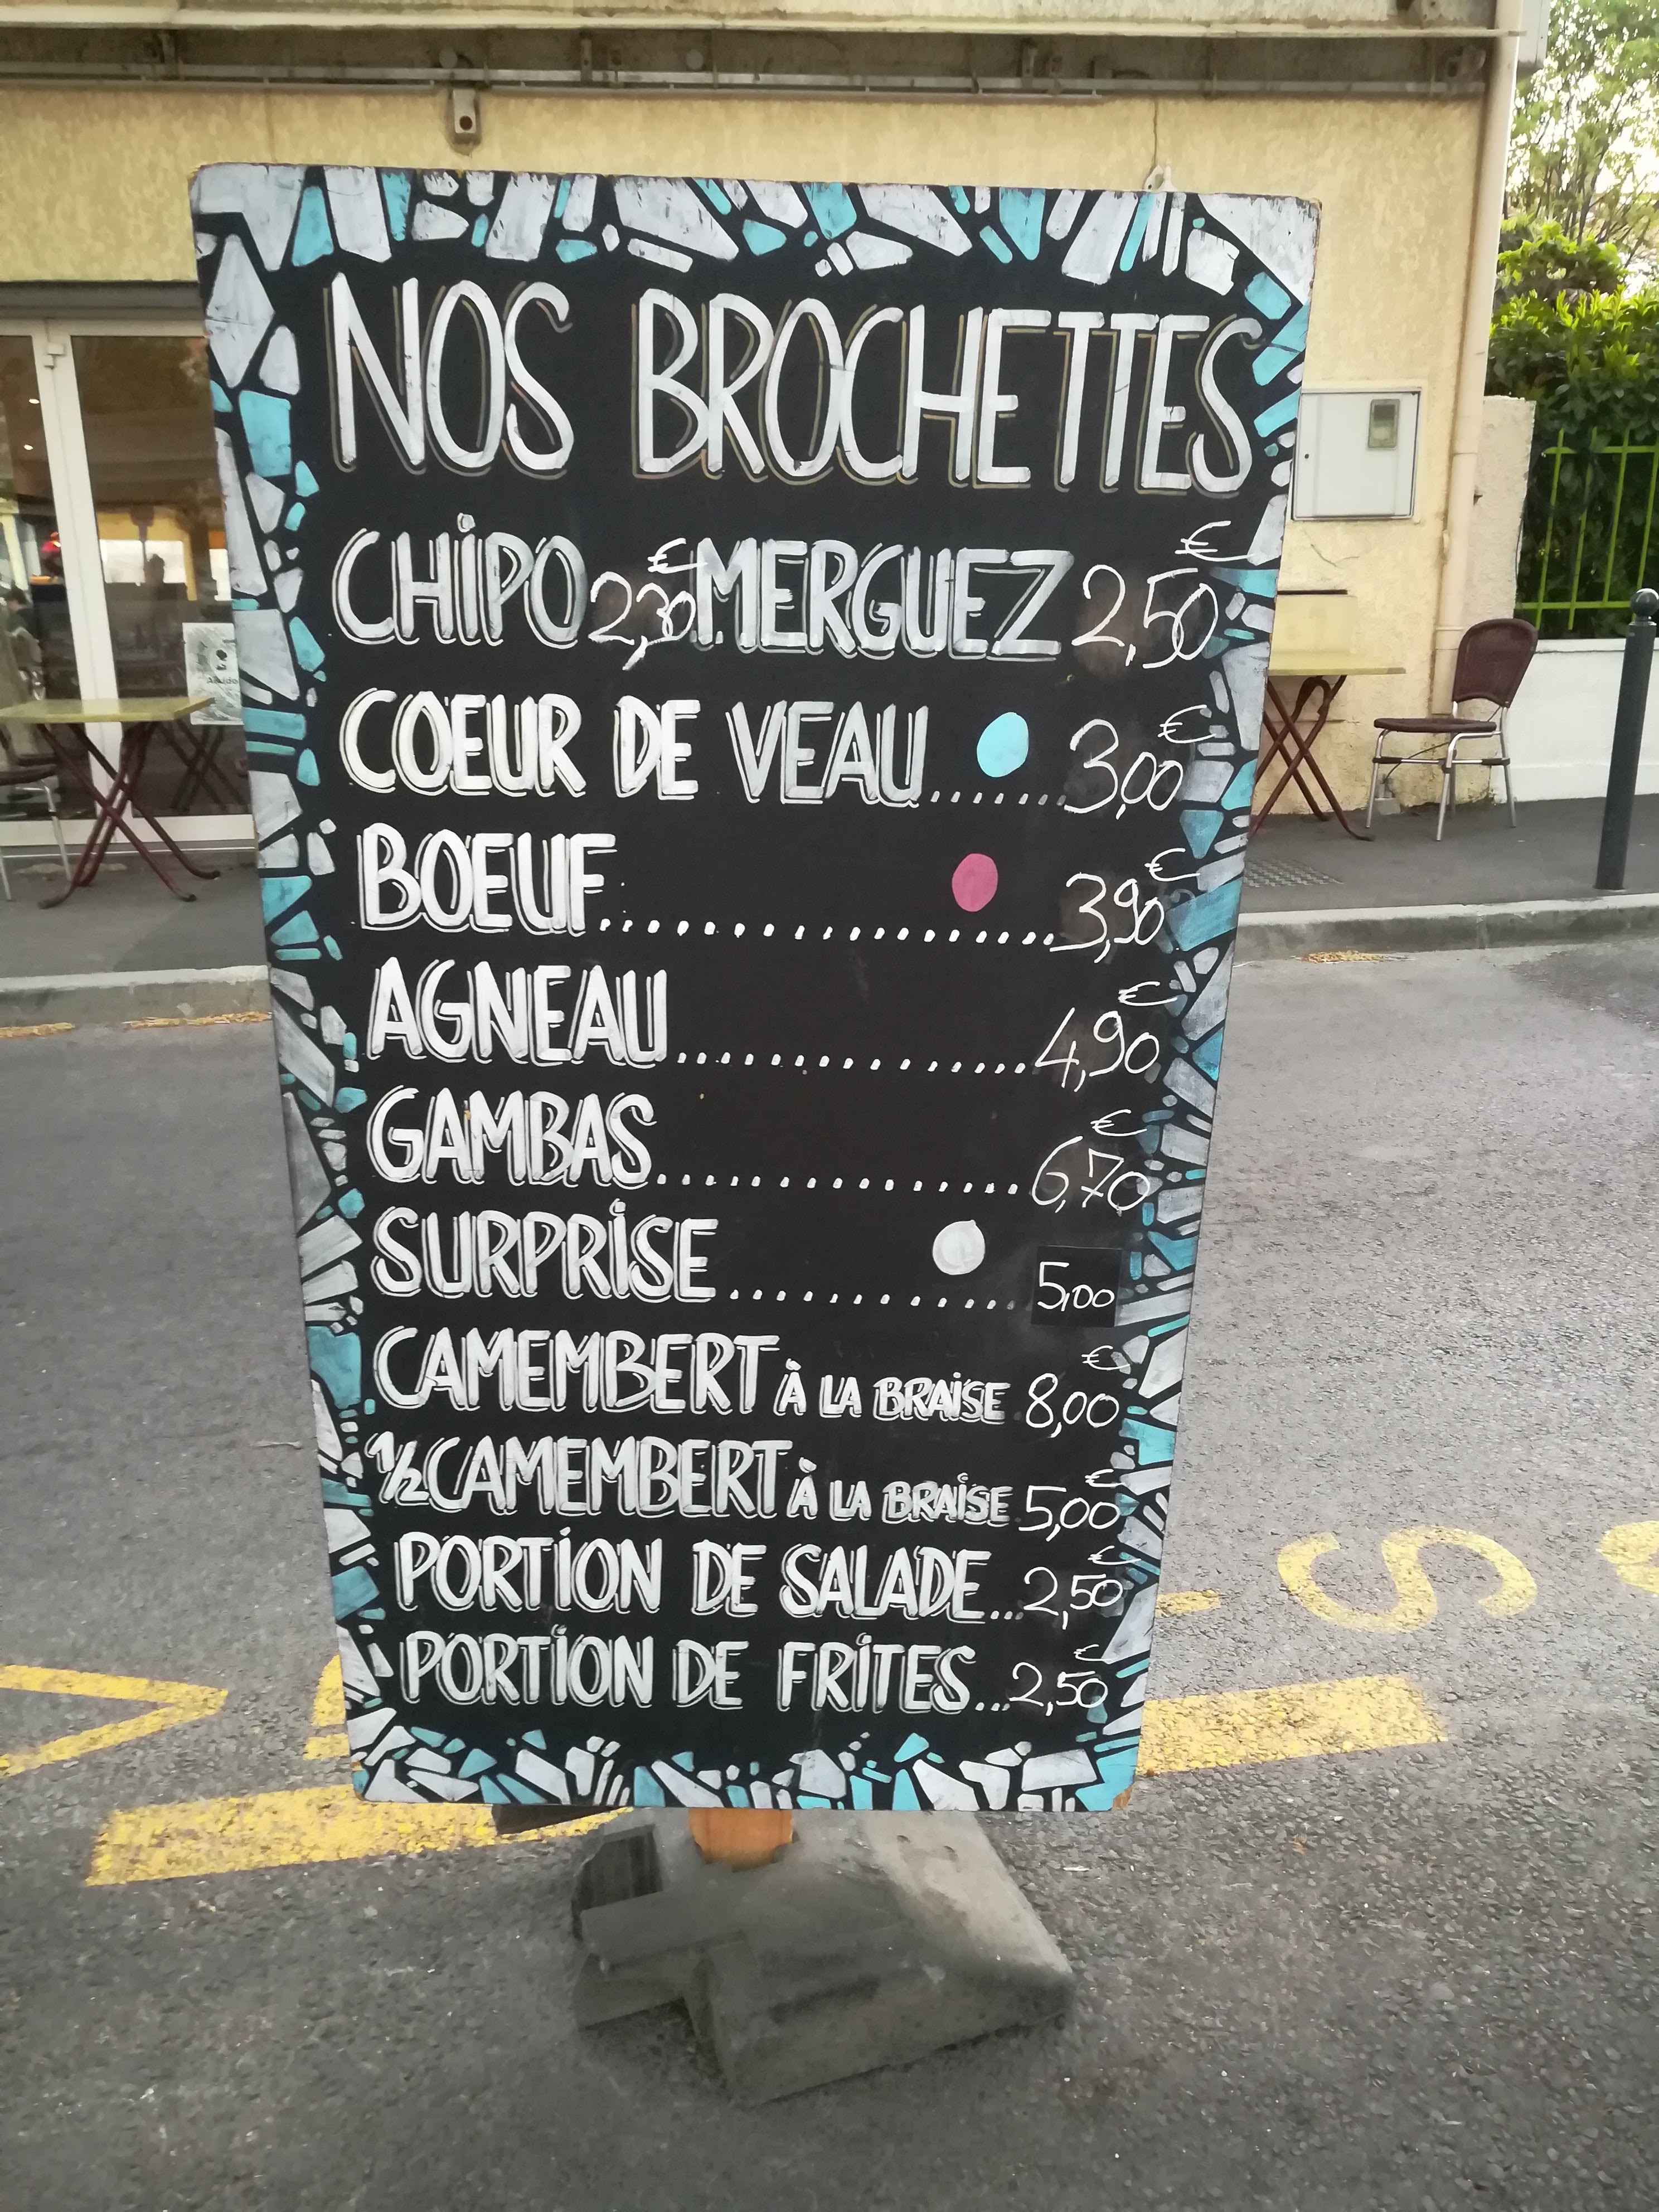 NOS BROCHETTES
CHIPO 2,30€ MERGUEZ 2,50€
COEUR DE VEAU....... 3,00€
BOEUF................... 3,90€
AGNEAU............... 4,90€
GAMBAS............... 6,70€
SURPRISE............ 5,00
CAMEMBERT À LA BRAISE 8,00€
1/2 CAMEMBERT À LA BRAISE 5,00€
PORTION DE SALADE... 2,50€
PORTION DE FRITES... 2,50€